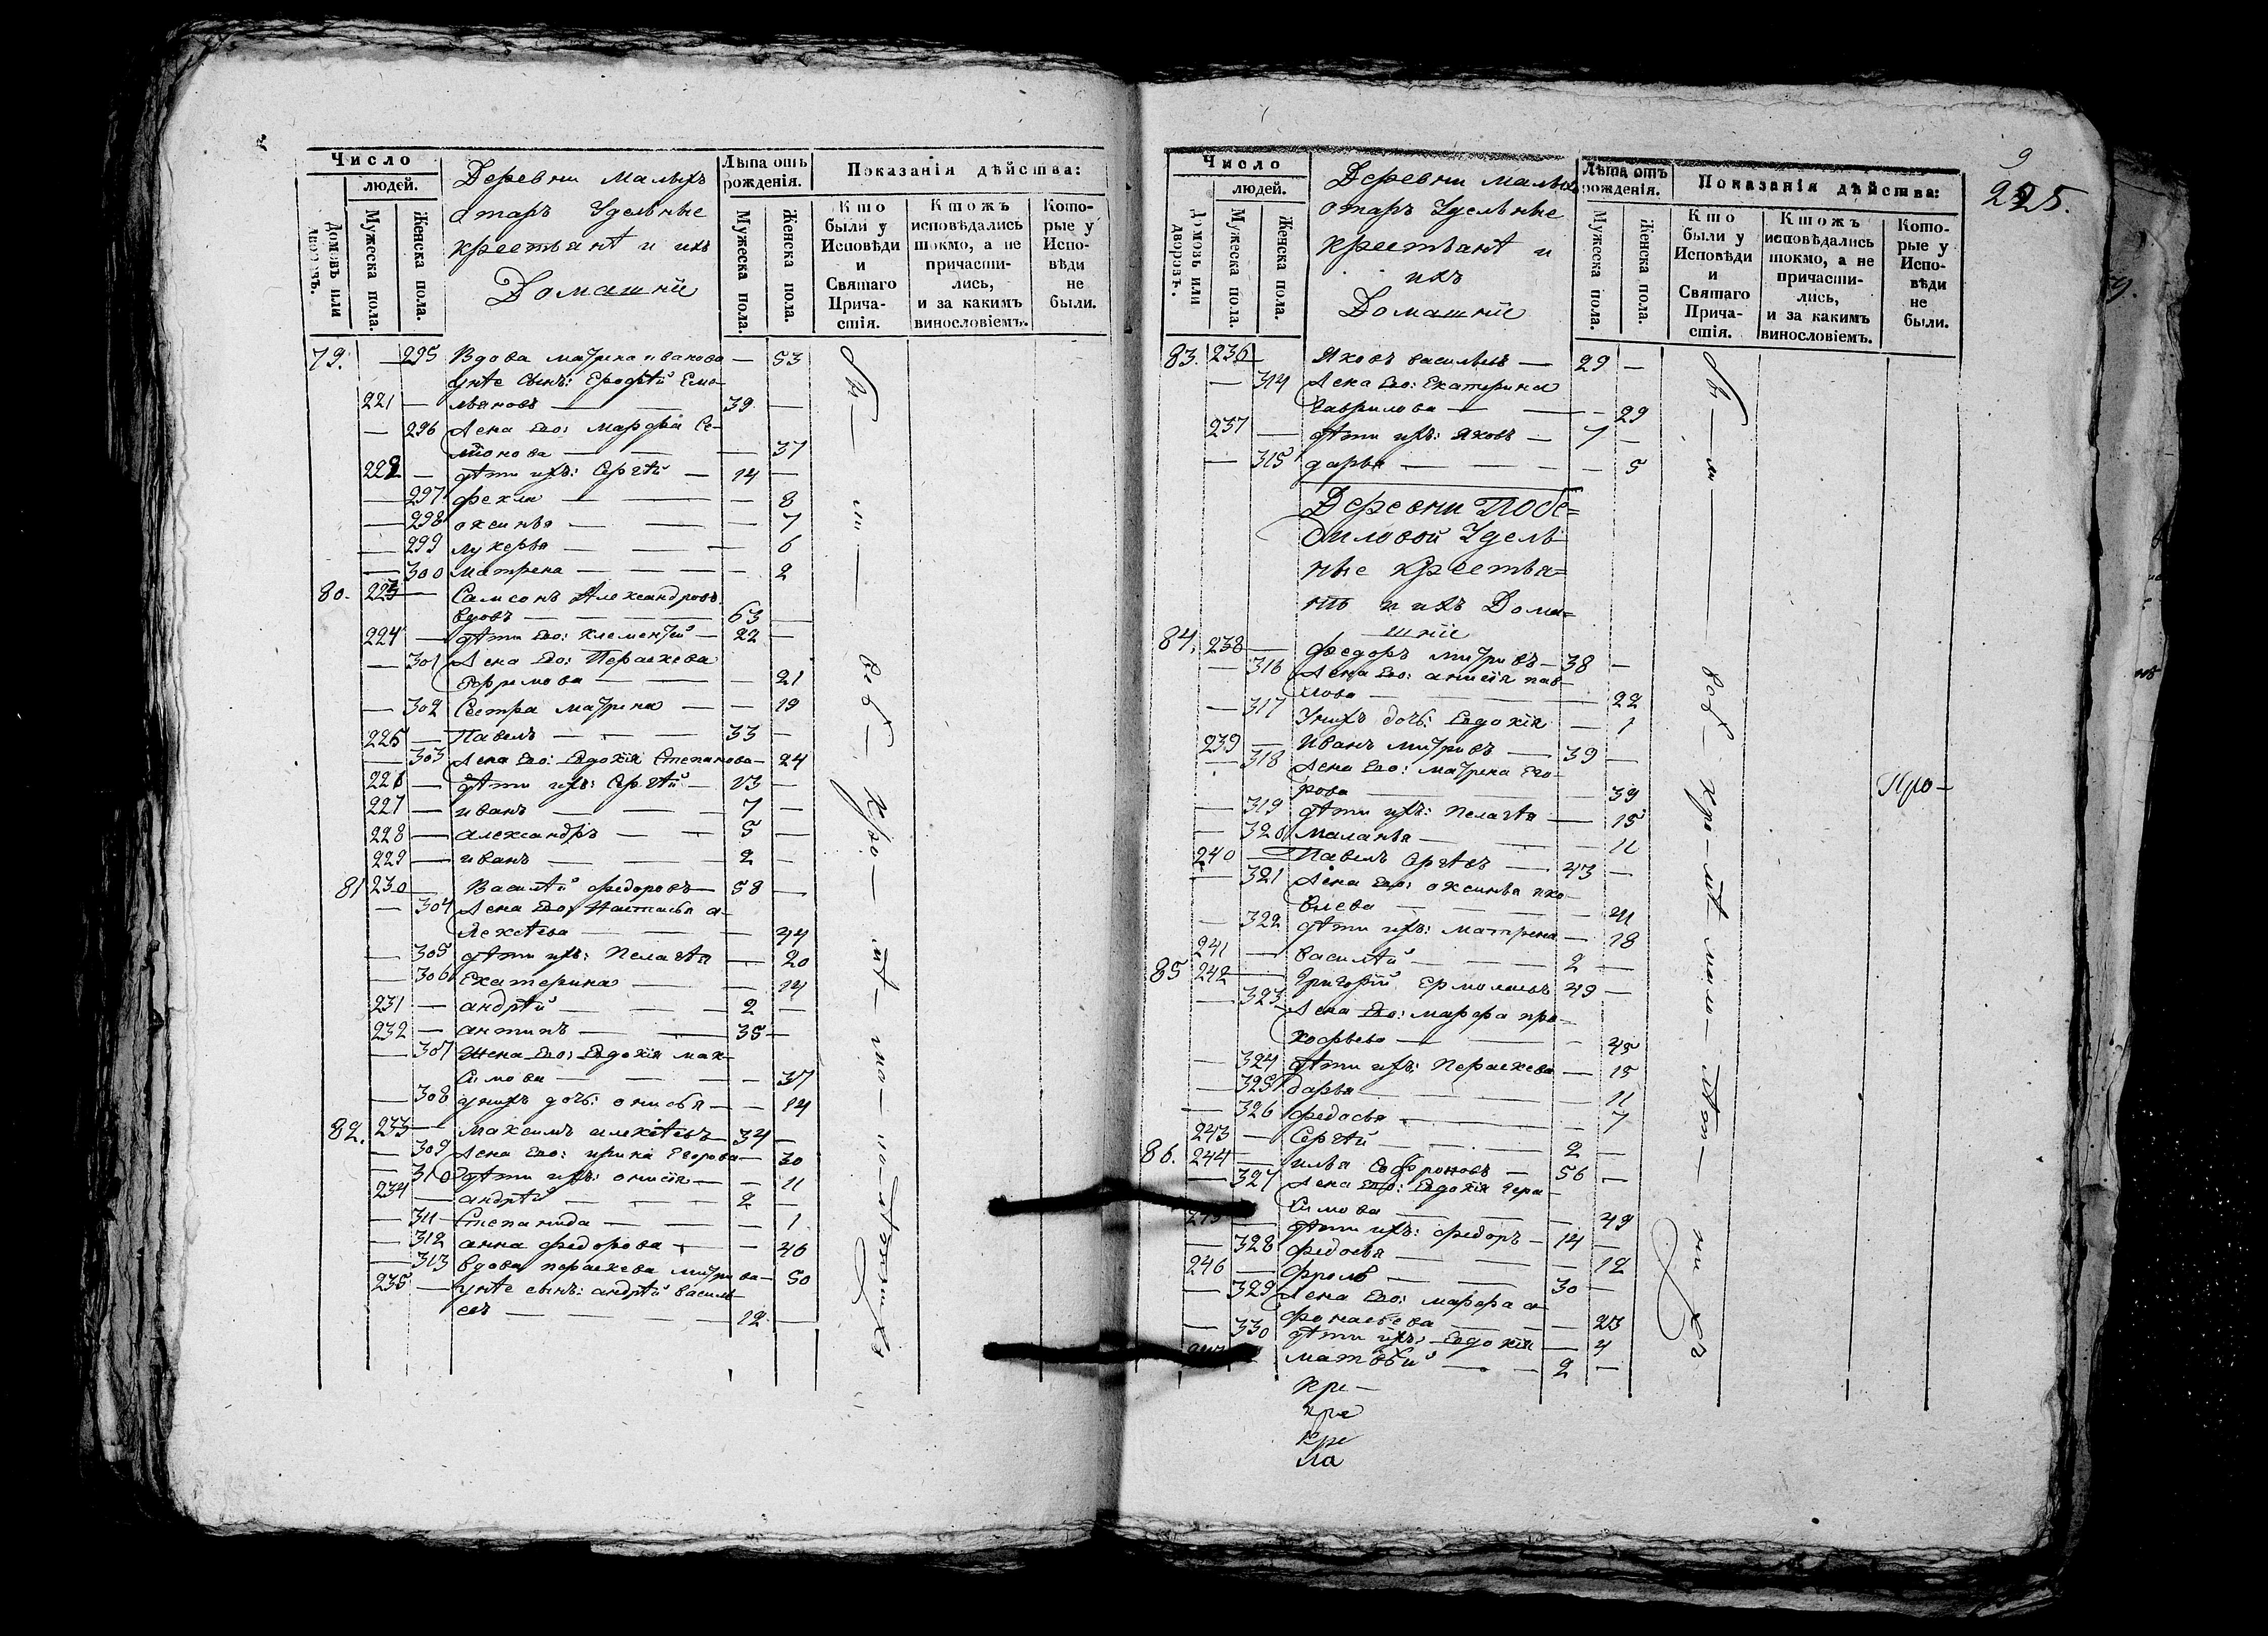 Число
людей.
Домовъ или дворовъ.
Мужеска пола.
Женска пола.
Деревни Малыхъ
отаръ Удельные
крестьянѣ и ихъ
Домашніе
Лѣта отъ рожденія.
Мужеска пола.
Женска пола.
Показанія дѣйства:
Кто были у Исповѣди и Святаго Причастія.
Ктожъ исповѣдались токмо, а не причастились, и за какимъ винословіемъ.
Которые у Исповѣди не были.
79. — 295 Вдова матрена иванова — 53
унѣе сынъ: Ерофѣй Еме-
221 — льяновъ — 39 —
— 296 жена Его: марфа Се-
міонова — 37
222 — дѣти ихъ: Сергѣй — 14 —
— 297 фекла — 8
— 298 оксинья — 7
— 299 лукерья — 6
— 300 матрена — 2
80. 223 — Самсонъ Александровъ
вдовъ — 63 —
224 — дѣти Его: клементій — 22 —
— 301 жена Его: Параскева
Ефримова — 21
— 302 Сестра матрена — 19
225 — Павелъ — 33 —
— 303 жена Его: Евдокія Степанова — 24
226 — дѣти ихъ: Сергѣй — 13 —
227 — иванъ — 7 —
228 — александръ — 5 —
229 — иванъ — 2 —
81 230 — Василѣй федоровъ — 58 —
— 304 жена Его: Настасья а-
лексѣева — 44
— 305 дѣти ихъ: Пелагѣя — 20
— 306 Екатерина — 14
231 — андрѣй — 2 —
232 — антипъ — 35 —
— 307 жена Его: Евдокія мак-
симова — 37
— 308 унихъ дочь: онисья — 14
82. 233 — максимъ алексѣевъ — 34 —
— 309 жена Его: ирина Егорова — 30
— 310 дѣти ихъ: онисія — 11
234 — андрѣй — 2 —
— 311 Степанида — 1
— 312 анна федорова — 46
— 313 вдова параскева митрива — 50
235 — унѣе сынъ: андрѣй василь-
евъ — 12 —
9
225.
Число
людей.
Домовъ или дворовъ.
Мужеска пола.
Женска пола.
Деревни малыхъ
отаръ Удельные
крестьянѣ и
ихъ
Домашніе
Лѣта отъ рожденія.
Мужеска пола.
Женска пола.
Показанія дѣйства:
Кто были у Исповѣди и Святаго Причастія.
Ктожъ исповѣдались токмо, а не причастились, и за какимъ винословіемъ.
Которые у Исповѣди не были.
83. 236 — Яковъ васильевъ — 29 —
— 314 жена Его: Екатерина
Гаврилова — 29
237 — дѣти ихъ: яковъ — 7 —
— 315 дарья — 5
Деревни Побе=
диловой Удель
ные крестья=
нѣ и ихъ Дома=
шніе
84. 238 — федоръ митривъ — 38 —
— 316 жена Его: анисія пав-
лова — 22
— 317 Унихъ дочь: Евдокія — 1
239 — иванъ митривъ — 39 —
— 318 жена Его: матрена Его-
рова — 39
— 319 дѣти ихъ: пелагѣя — 15
— 320 маланья — 11
240 — Павелъ Сргѣевъ — 43 —
— 321 жена Его: оксинья яко-
влева — 41
— 322 дѣти ихъ: матрена — 18
241 — василѣй — 2 —
85 242 — Григорій Ермолаевъ 49 —
— 323 жена Его: марфа про-
кофьева — 45
— 324 дѣти ихъ: параскева — 15
— 325 дарья — 11
— 326 федосья — 7
243 — Сергѣй — 2 —
86. 244 — илья Софроновъ — 56 —
— 327 жена Его: Евдокія гера-
симова — 49
дѣти ихъ: федоръ — 14 —
— 328 федосья — 12
246 — фролъ — 30 —
— 329 жена Его: марфа а-
фонасьева — 23
— 330 дѣти ихъ: Евдокія — 4
матвѣй — 2 —
Про —
кре —
кре
кре
ла